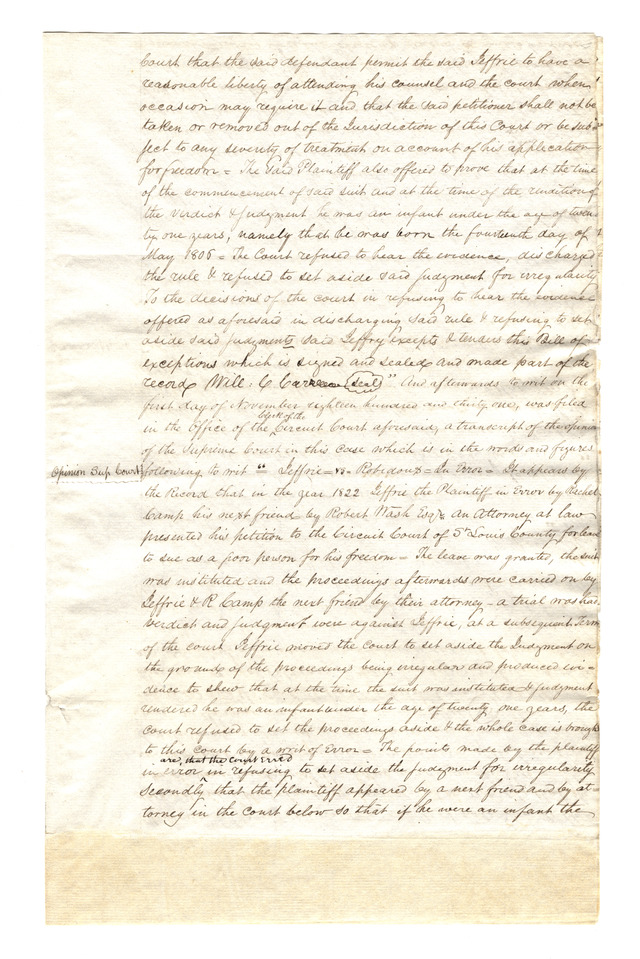 Court that the said defendant permit the said Jeffrie to have a
reasonable liberty of attending his counsel and the court when
occasion may require it and that the said petitioner shall not be
taken or removed out of the Jurisdiction of this Court or be sub
ject to any severity of treatment on account of his application
for freedom = The said Plaintiff also offered to prove that at the time
of the commencement of said suit and at the time of the rendition of
the verdict & judgment he was an infant under the age of twen
ty one years, namely that he was born the fourteenth day of
May 1806 = The Court refused to hear the evidence, discharged
the rule & refused to set aside said judgment for irregularity
To the decisions of the court in refusing to hear the evidence
offered as aforesaid in discharging said rule & refusing to set
aside said judgments said Jeffry excepts & tenders this Bill of
exceptions which is signed and sealed and made part of the
record Will. C. Carr (seal)" And afterwards to wit on the
first day of November eighteen hundred and thirty one, was filed
in the Office of the Clerk of the Circuit Court aforesaid, a transcript of the opinion
of the Supreme Court in this case which is in the words and figures
Opinion Sup. Court
following to wit " Jeffrie = vs = Robidoux = In Error = It appears by
the Record that in the year 1822 Jeffrie the Plaintiff in Error by Rachel
Camp his next friend by Robert Wash Esqr. an Attorney at law
presented his petition to the Circuit Court of St Louis County for leave
to sue as a poor person for his freedom = The leave was granted, the suit
was instituted and the proceedings afterwards were carried on by
Jeffrie & R Camp the next friend by their attorney - a trial was had
verdict and judgment were against Jeffrie, at a subsequent term
of the court Jeffrie moved the court to set aside the Judgment on
the grounds of the proceedings being irregular and produced evi=
dence to shew that at the time the suit was instituted & judgment
rendered he was an infant under the age of twenty one years, the
court refused to set the proceedings aside & the whole case is brough
to this court by a writ of Error = The points made by the plaintiff
in error are, that the Court Erred in refusing to set aside the judgment for irregularity
Secondly that the plaintiff appeared by a next friend and by at=
torney in the court below so that if he were an infant the